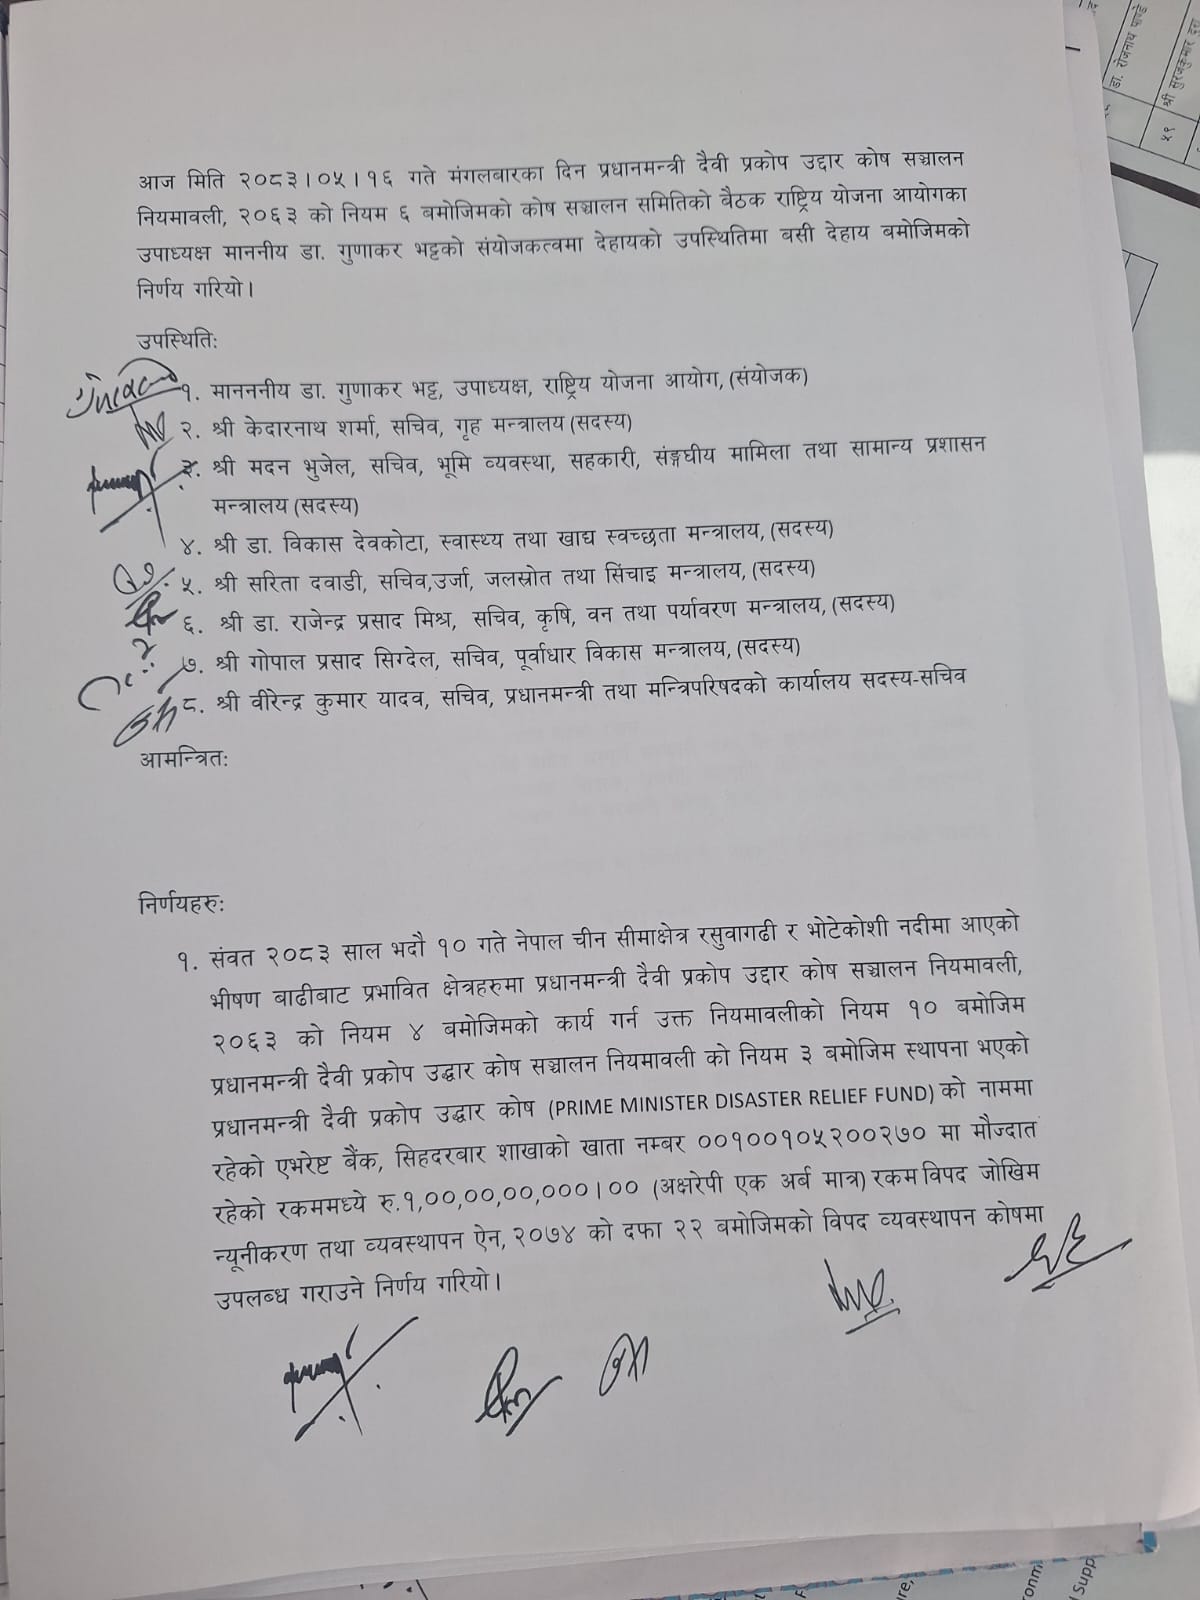 आज मिति २०८३।०५।१६ गते मंगलबारका दिन प्रधानमन्त्री दैवी प्रकोप उद्दार कोष सञ्चालन
नियमावली, २०६३ को नियम ६ बमोजिमको कोष सञ्चालन समितिको बैठक राष्ट्रिय योजना आयोगका
उपाध्यक्ष माननीय डा. गुणाकर भट्टको संयोजकत्वमा देहायको उपस्थितिमा बसी देहाय बमोजिमको
निर्णय गरियो।
उपस्थिति:
१. मानननीय डा. गुणाकर भट्ट, उपाध्यक्ष, राष्ट्रिय योजना आयोग, (संयोजक)
२. श्री केदारनाथ शर्मा, सचिव, गृह मन्त्रालय (सदस्य)
३. श्री मदन भुजेल, सचिव, भूमि व्यवस्था, सहकारी, सङ्घीय मामिला तथा सामान्य प्रशासन
मन्त्रालय (सदस्य)
४. श्री डा. विकास देवकोटा, स्वास्थ्य तथा खाद्य स्वच्छता मन्त्रालय, (सदस्य)
५. श्री सरिता दवाडी, सचिव,उर्जा, जलस्रोत तथा सिंचाइ मन्त्रालय, (सदस्य)
६. श्री डा. राजेन्द्र प्रसाद मिश्र, सचिव, कृषि, वन तथा पर्यावरण मन्त्रालय, (सदस्य)
७. श्री गोपाल प्रसाद सिग्देल, सचिव, पूर्वाधार विकास मन्त्रालय, (सदस्य)
८. श्री वीरेन्द्र कुमार यादव, सचिव, प्रधानमन्त्री तथा मन्त्रिपरिषदको कार्यालय सदस्य-सचिव
आमन्त्रित:
निर्णयहरु:
१. संवत २०८३ साल भदौ १० गते नेपाल चीन सीमाक्षेत्र रसुवागढी र भोटेकोशी नदीमा आएको
भीषण बाढीबाट प्रभावित क्षेत्रहरुमा प्रधानमन्त्री दैवी प्रकोप उद्दार कोष सञ्चालन नियमावली,
२०६३ को नियम ४ बमोजिमको कार्य गर्न उक्त नियमावलीको नियम १० बमोजिम
प्रधानमन्त्री दैवी प्रकोप उद्धार कोष सञ्चालन नियमावली को नियम ३ बमोजिम स्थापना भएको
प्रधानमन्त्री दैवी प्रकोप उद्धार कोष (PRIME MINISTER DISASTER RELIEF FUND) को नाममा
रहेको एभरेष्ट बैंक, सिहदरबार शाखाको खाता नम्बर ००१००१०५२००२७० मा मौज्दात
रहेको रकममध्ये रु.१,००,००,००,०००।०० (अक्षरेपी एक अर्ब मात्र) रकम विपद जोखिम
न्यूनीकरण तथा व्यवस्थापन ऐन, २०७४ को दफा २२ बमोजिमको विपद व्यवस्थापन कोषमा
उपलब्ध गराउने निर्णय गरियो।
डा. रोजनाथ पाण्डे
५९ श्री सुरजकुमार